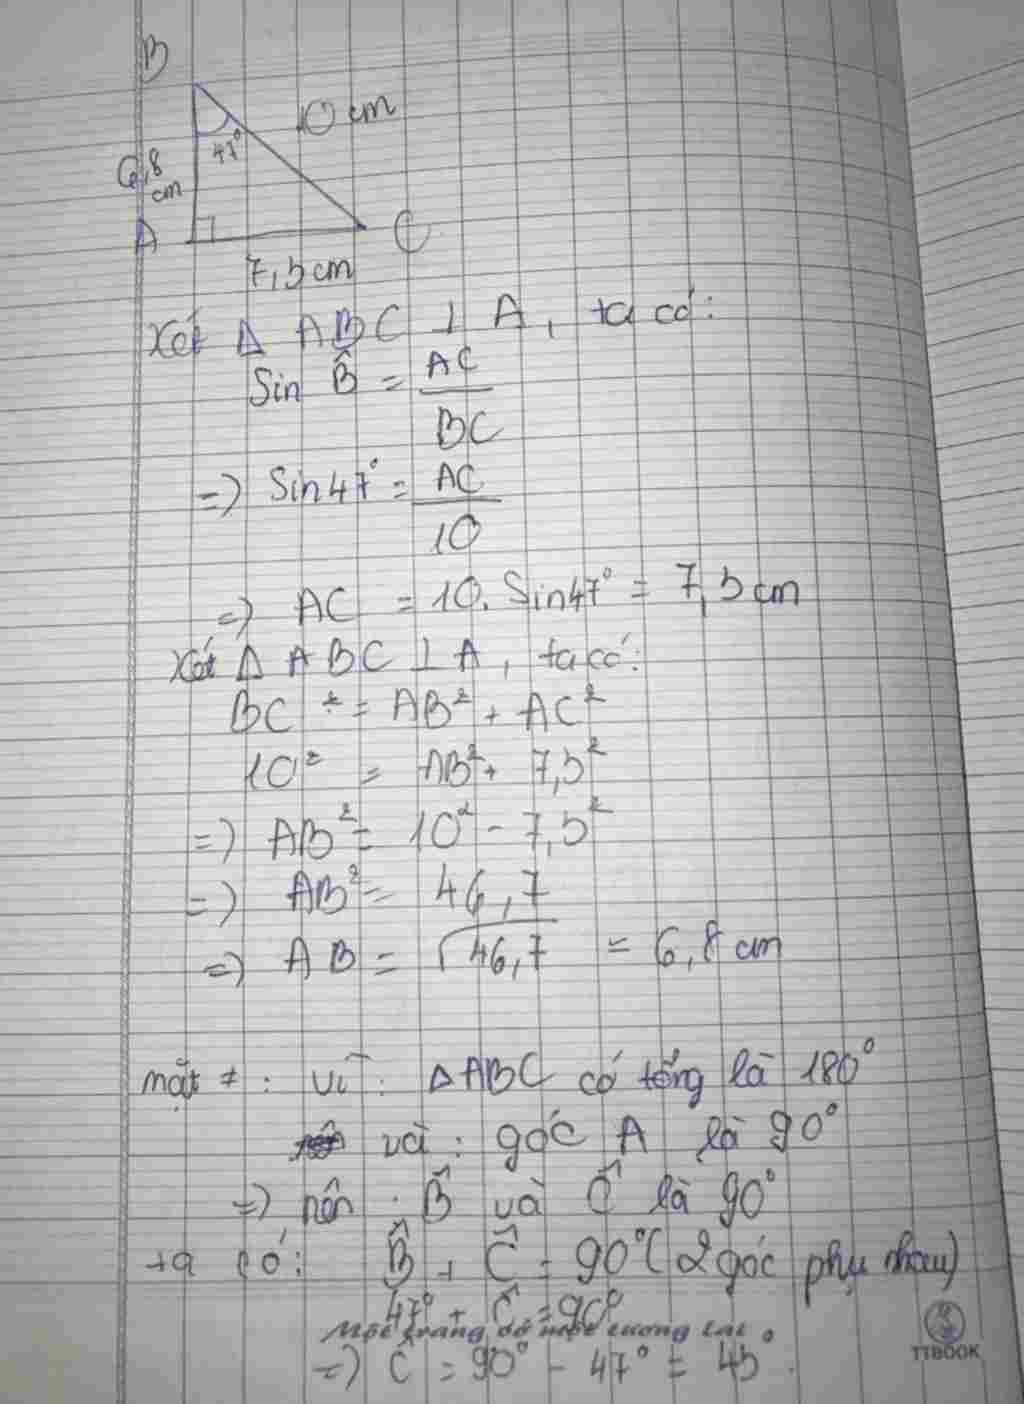 B
10 cm
47°
6,8
cm
A
C
7,3 cm
Xét Δ ABC ⊥ A, ta có:
Sin B̂ = AC/BC
=> Sin 47° = AC/10
=> AC = 10. Sin 47° = 7,3 cm
Xét Δ ABC ⊥ A, ta có:
BC² = AB² + AC²
10² = AB² + 7,3²
=> AB² = 10² - 7,3²
=> AB² = 46,7
=> AB = √46,7 = 6,8 cm
mặt ≠ : vì : Δ ABC có tổng là 180°
và : góc A là 90°
=> nên : B̂ và Ĉ là 90°
ta có: B̂ + Ĉ = 90° (2 góc phụ nhau)
47° + Ĉ = 90°
=> Ĉ = 90° - 47° = 43°.
TTBOOK